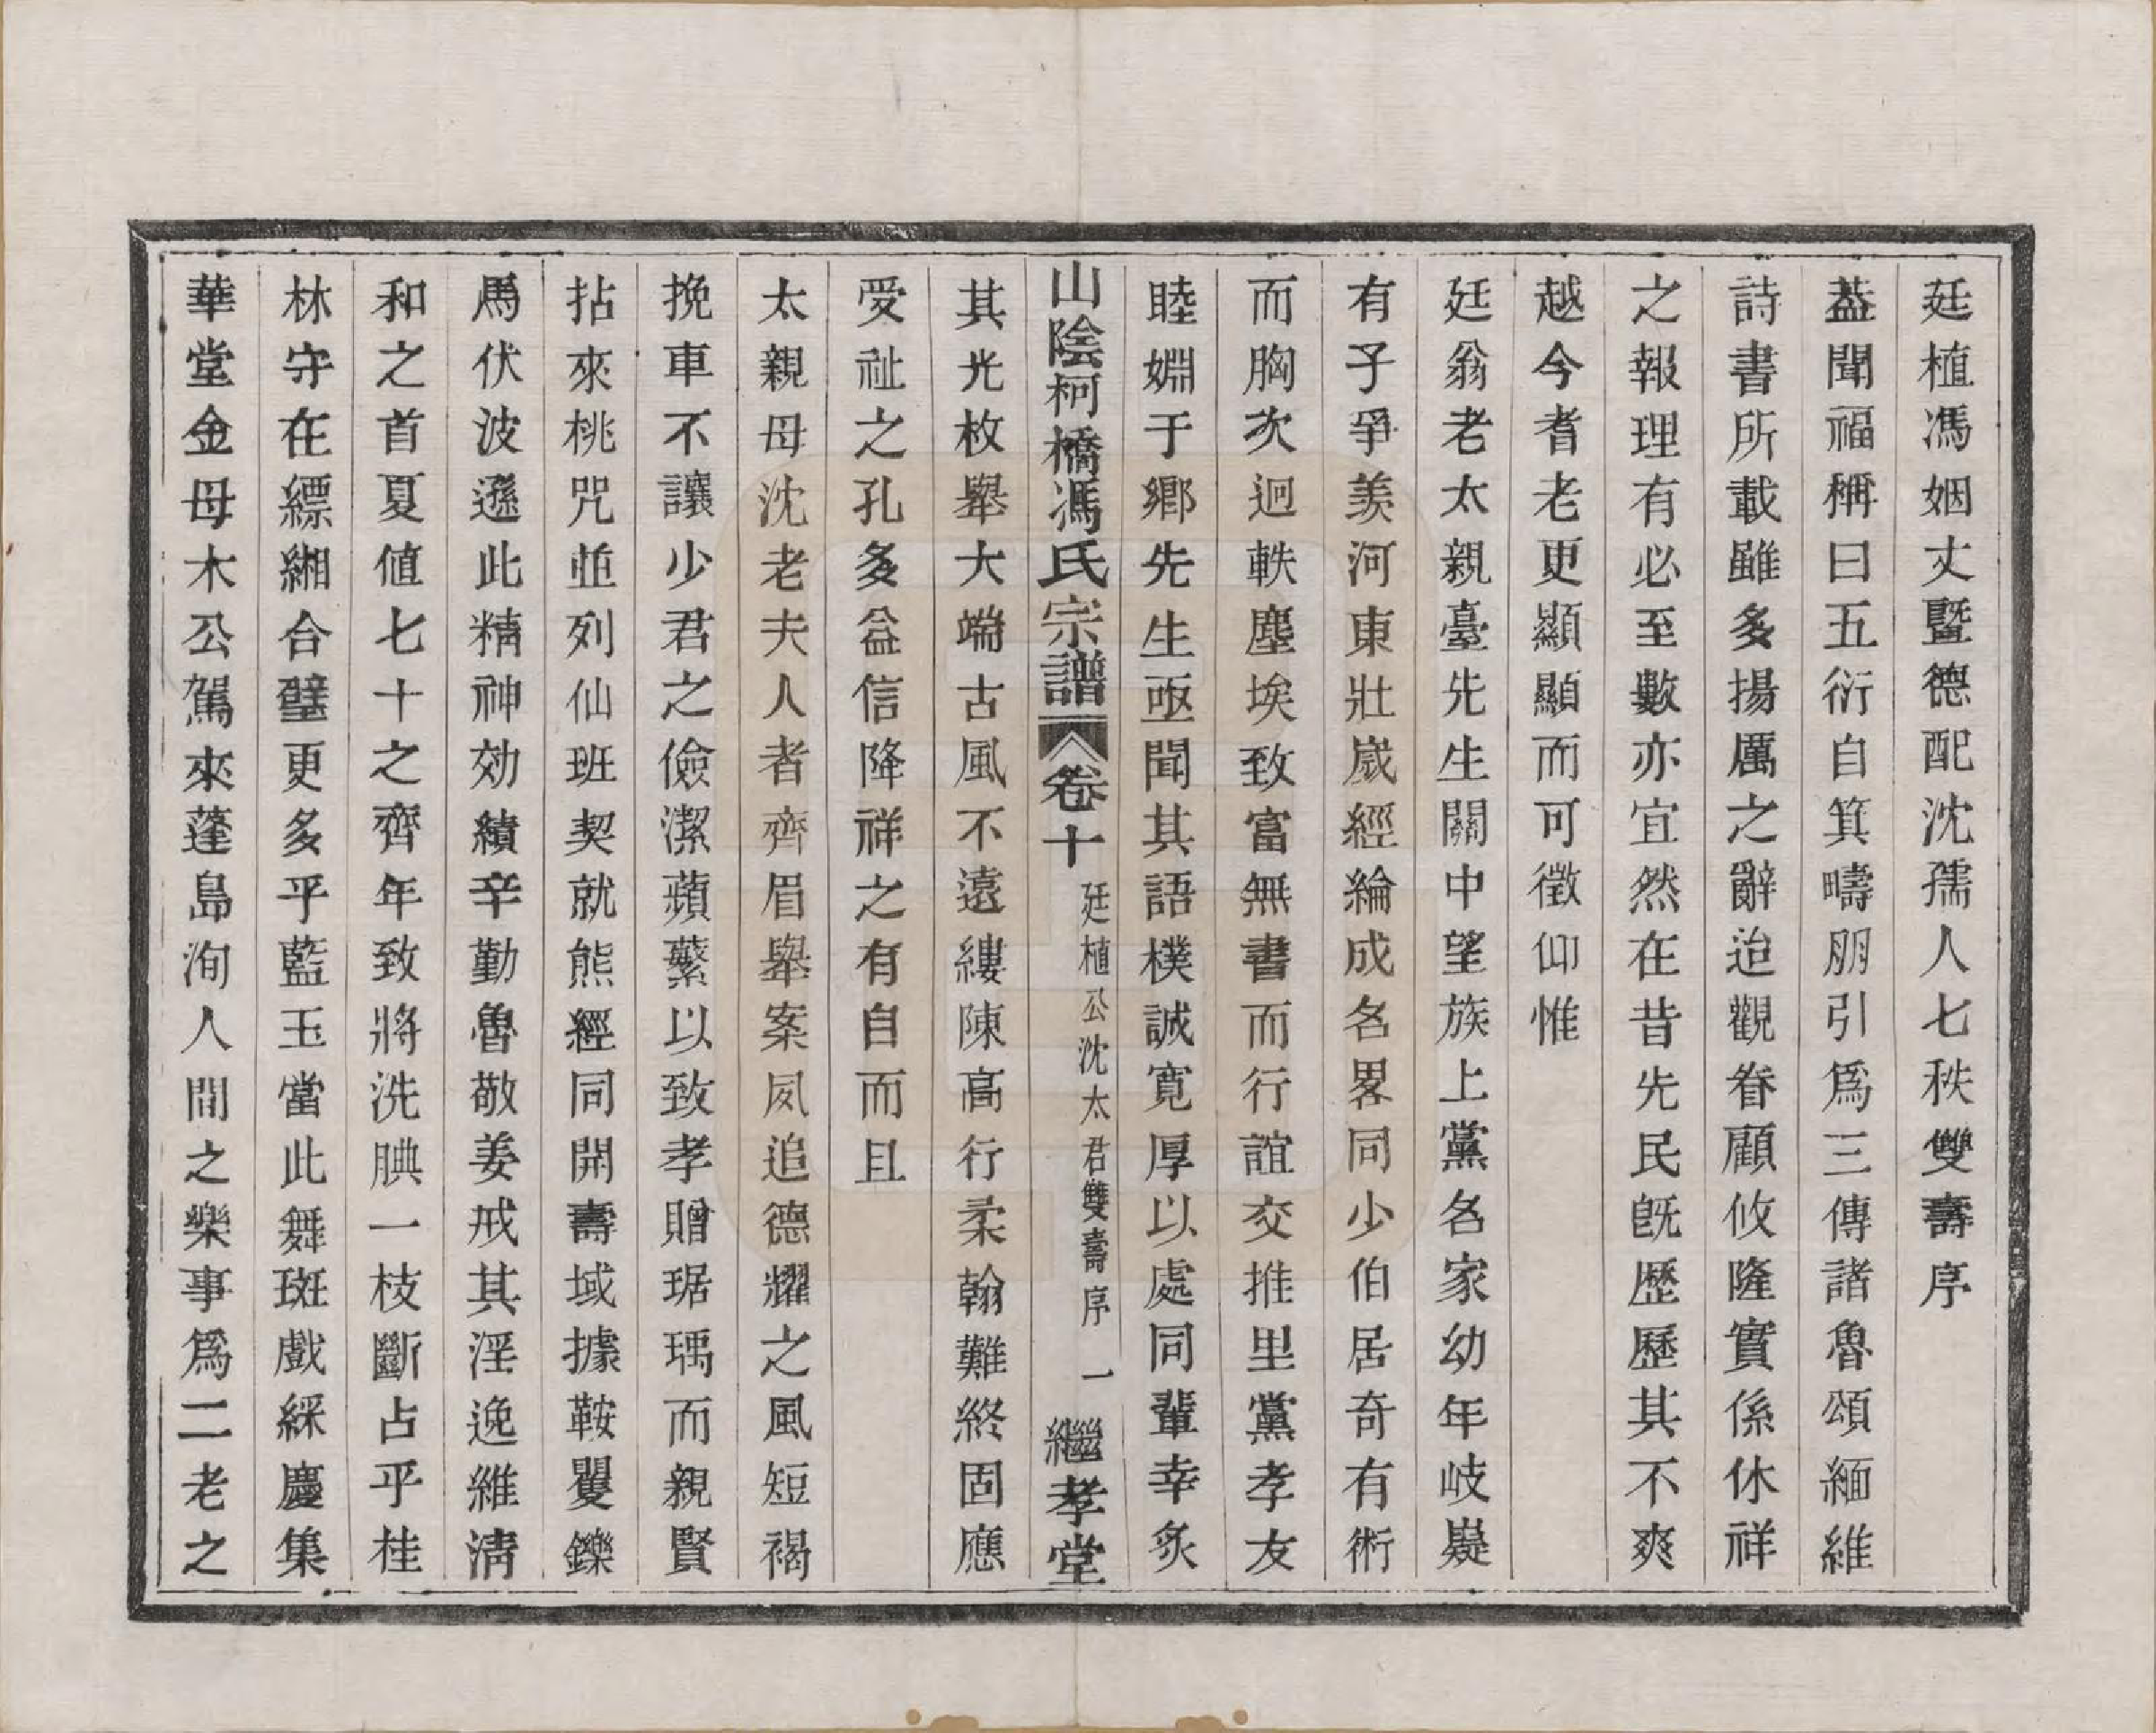 廷植馮姻丈曁德配沈孺人七秩雙壽序
葢聞福稱曰五衍自箕疇朋引爲三傳諸魯頌緬維
詩書所載雖多揚厲之辭迨觀眷顧攸隆實係休祥
之報理有必至數亦宜然在昔先民旣歷歷其不爽
越今耆老更顯顯而可徵仰惟
廷翁老太親臺先生關中望族上黨名家幼年岐嶷
有子爭羨河東壯嵗經綸成名畧同少伯居奇有術
而胸次迥軼塵埃致富無書而行誼交推里黨孝友
睦婣于鄉先生亟聞其語樸誠寬厚以處同輩幸炙
其光枚舉大端古風不遠縷陳高行柔翰難終固應
受祉之孔多益信降祥之有自而且
太親母沈老夫人者齊眉舉案夙追德耀之風短褐
挽車不讓少君之儉潔蘋蘩以致孝贈琚瑀而親賢
拈來桃咒並列仙班契就熊經同開壽域據鞍矍鑠
馬伏波遜此精神効績辛勤魯敬姜戒其淫逸維淸
和之首夏値七十之齊年致將洗腆一枝斷占乎桂
林守在縹緗合璧更多乎藍玉當此舞斑戲綵慶集
華堂金母木公駕來蓬島洵人間之樂事爲二老之
山陰柯橋馮氏宗譜 卷十 廷植公沈太君雙壽序 一 繼孝堂